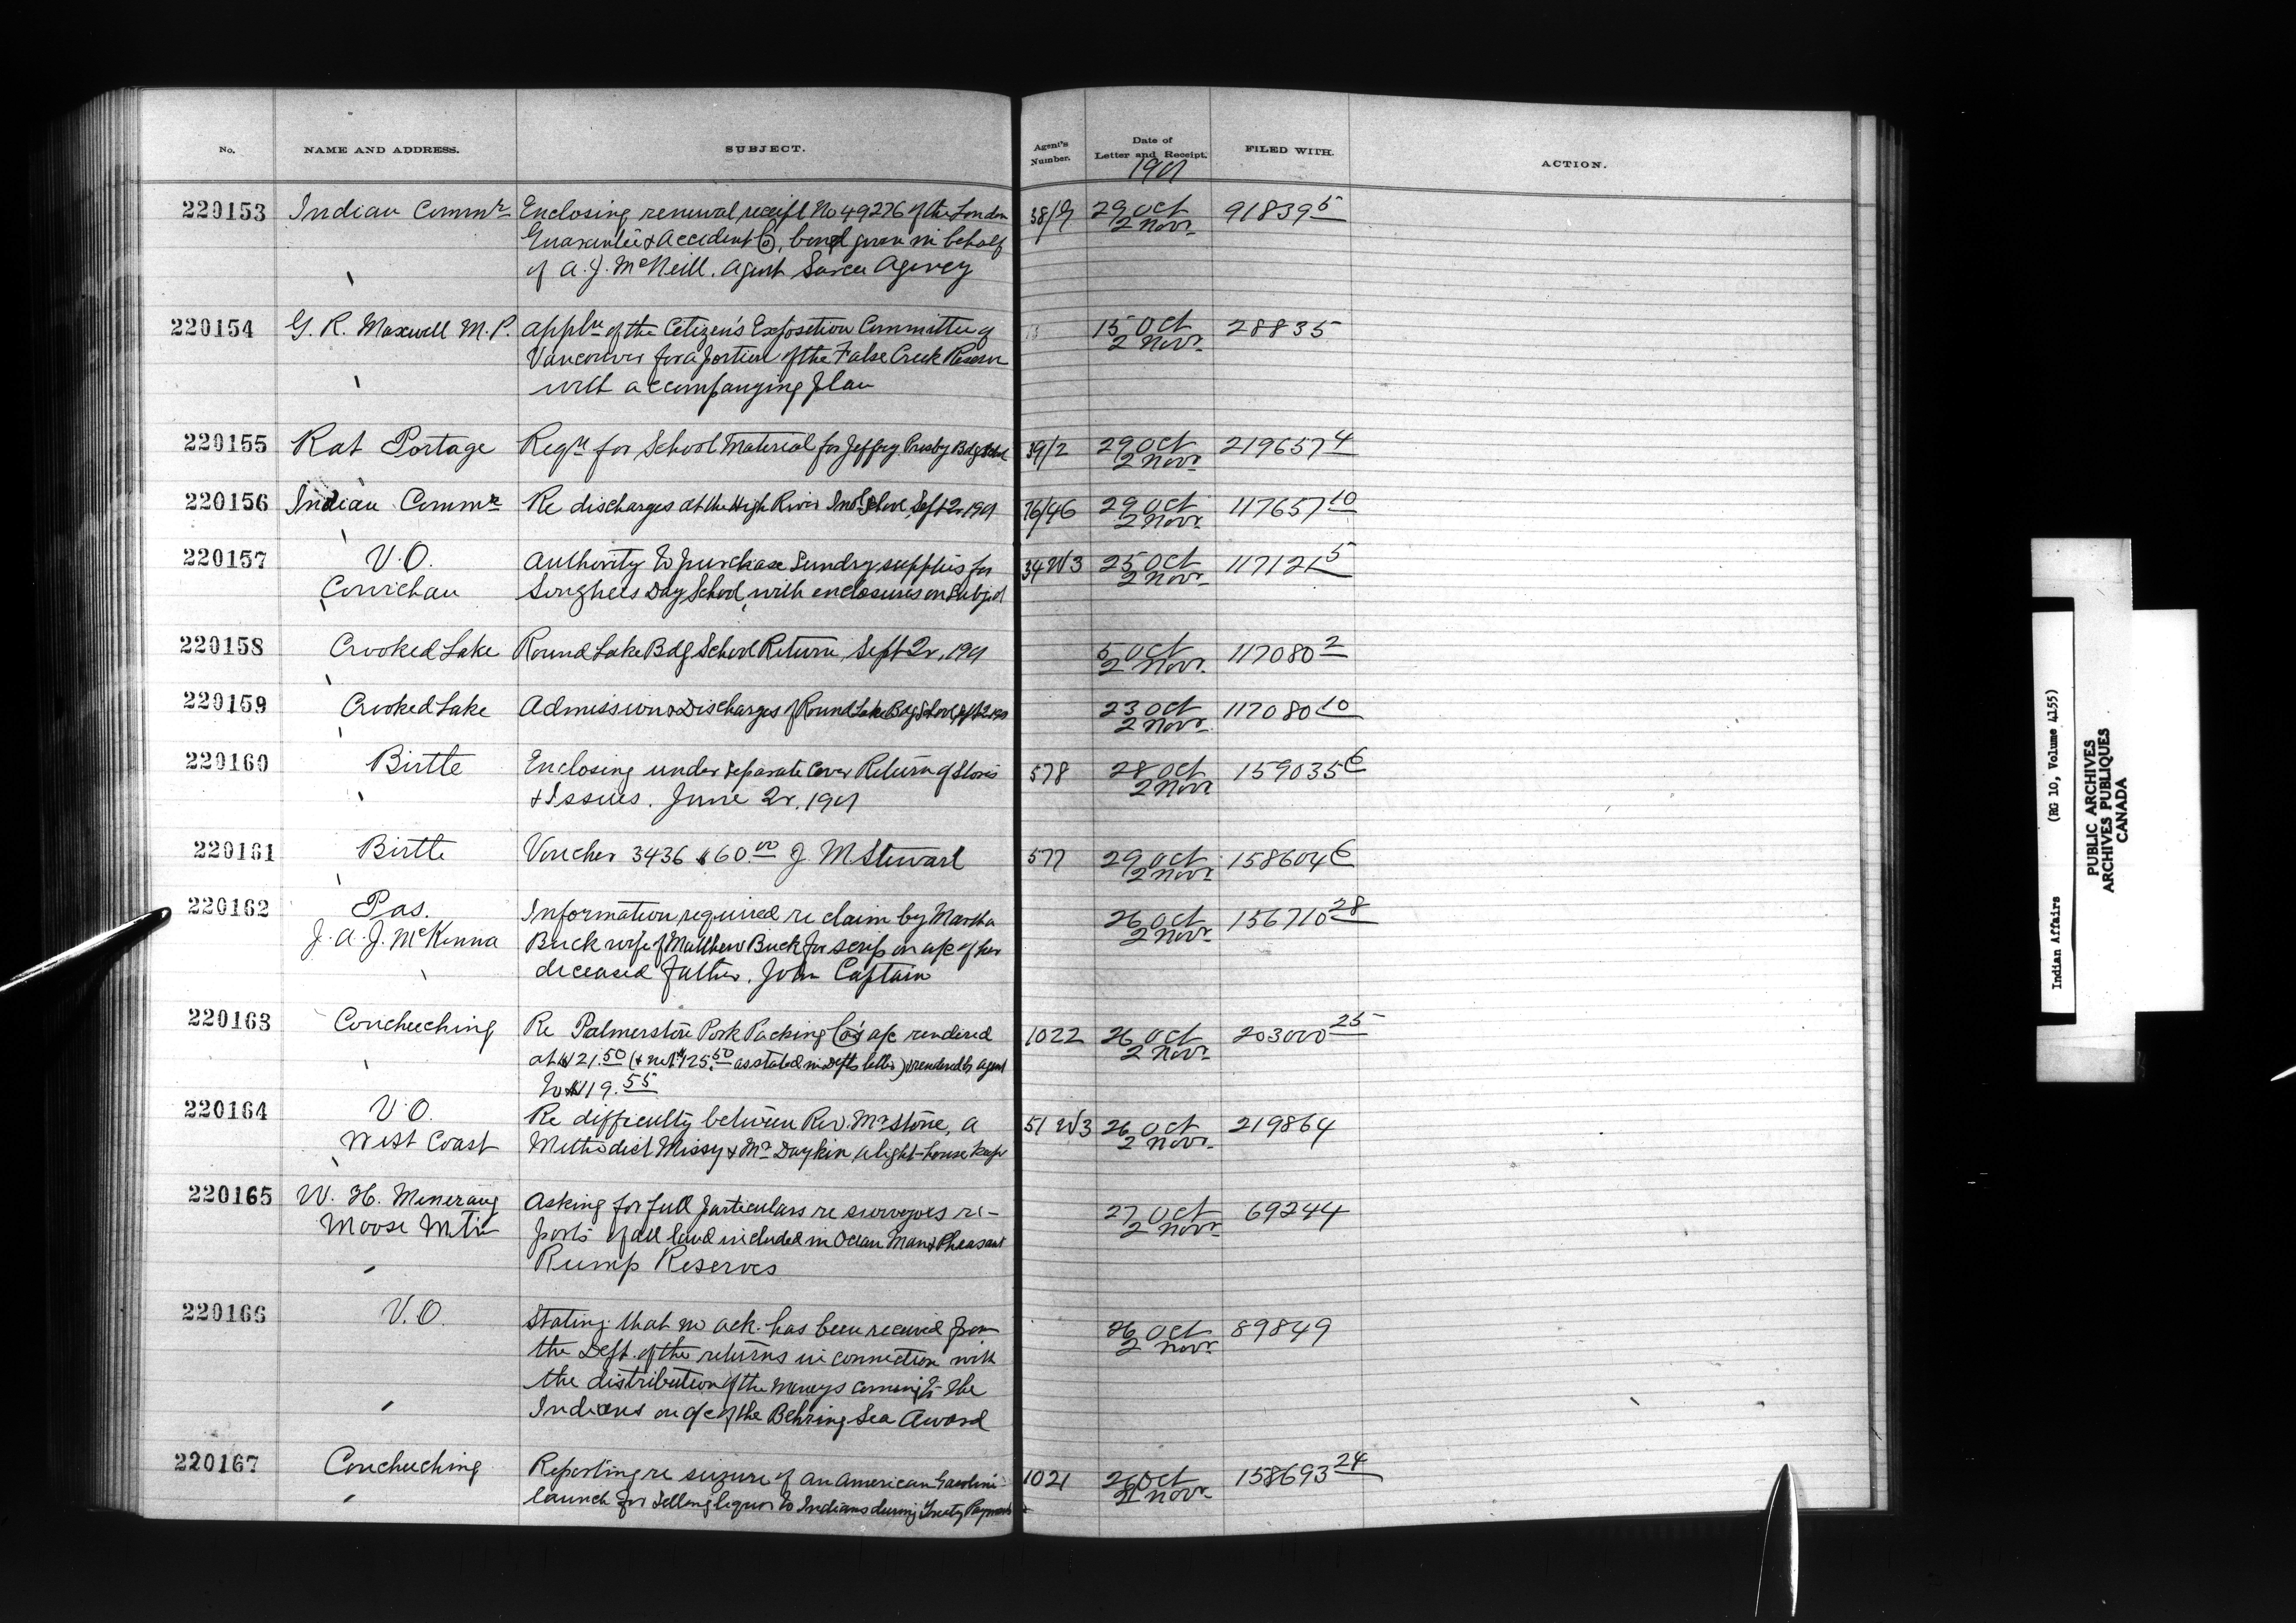 No. NAME AND ADDRESS. SUBJECT. Agent's Number. Date of Letter and Receipt. FILED WITH. ACTION.
1901
220153 Indian Commr Enclosing renewal receipt No 49276 of the London 38/9 29 Oct 91839 5
Guarantee & Accident Co, bond given in behalf 2 Novr
of A. J. McNeill. Agent Sarcee Agency
220154 G. R. Maxwell M.P. Appln of the Citizen's Exposition Committee of 15 Oct 28835
Vancouver for a portion of the False Creek Reserve 2 Novr
with accompanying plan
220155 Rat Portage Reqn for School Material for Jeffery Presby Bdg Schl 39/2 29 Oct 219657 4
2 Novr
220156 Indian Commr Re discharges at the High River Indl School, Sept 2r, 1901 76/46 29 Oct 117657 10
2 Novr
220157 V.O. Authority to purchase Sundry supplies for 34 W3 25 Oct 117121 5
Cowichan Songhees Day School, with enclosures on subject 2 Novr
220158 Crooked Lake Round Lake Bdg School Return, Sept 2r, 1901 5 Oct 117080 2
2 Novr
220159 Crooked Lake Admissions & Discharges of Round Lake Bdg School, Sept 2r 1901 23 Oct 117080 10
2 Novr
220160 Birtle Enclosing under separate cover Return of Stores 578 28 Oct 159035 6
& Issues. June 2r, 1901 2 Novr
220161 Birtle Voucher 3436 $60.00 J. M Stewart 577 29 Oct 158604 6
2 Novr
220162 Pas. Information required re claim by Martha 26 Oct 156710 28
J. A. J. McKenna Buck wife of Matthew Buck for scrip on a/c of her 2 Novr
deceased father, John Captain
220163 Coucheeching Re Palmerston Pork Packing Co's a/c rendered 1022 26 Oct 203000 25
at $121.50 (& not $125.50 as stated in Depts letter) & rendered to agent 2 Novr
to $119.55
220164 V.O. Re difficulty between Rev. Mr Stone, a 51 W3 26 Oct 219864
West Coast Methodist Missy & Mr Daykin a light-house keepr 2 Novr
220165 W. H. Asking for full particulars re surveyors re- 27 Oct 69244
Moose Mtn ports of all land included in Ocean Man & Pheasant 2 Novr
Rump Reserves
220166 V.O. Stating that no ack. has been received from 26 Oct 89849
the Dept. of the returns in connection with 2 Novr
the distribution of the moneys coming to the
Indians on a/c of the Behring Sea Award
220167 Coucheeching Reporting re seizure of an American Gasoline 1021 26 Oct 158693 24
launch for selling liquor to Indians during Treaty Payments 2 Novr
Indian Affairs (RG 10, Volume 4155)
PUBLIC ARCHIVES
ARCHIVES PUBLIQUES
CANADA